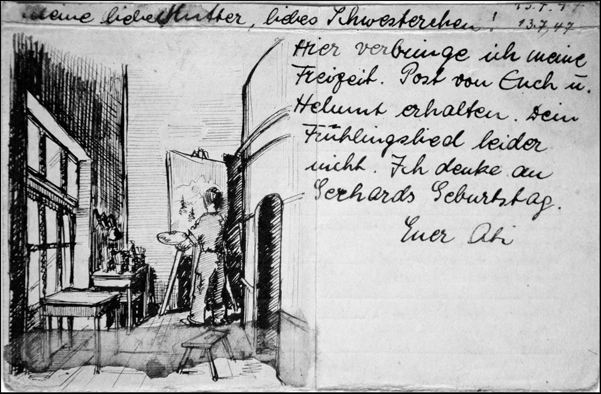 Meine liebe Mutter, liebes Schwesterchen!
13.7.47
Hier verbringe ich meine
Freizeit. Post von Euch u.
Helmut erhalten. Dein
Frühlingslied leider
nicht. Ich denke an
Gerhards Geburtstag.
Euer Abi